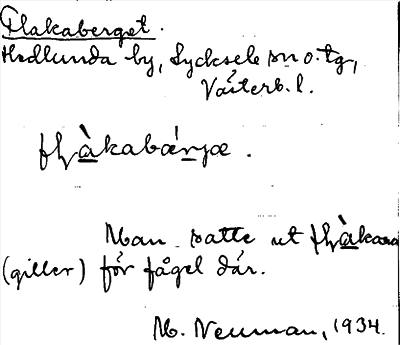 Flakaberget.
Hedlunda by, Lycksele sn o. tg,
Västerb. l.
flàkabǽrjæ.
Man satte ut flàkana
(giller) för fågel där.
M. Neuman, 1934.